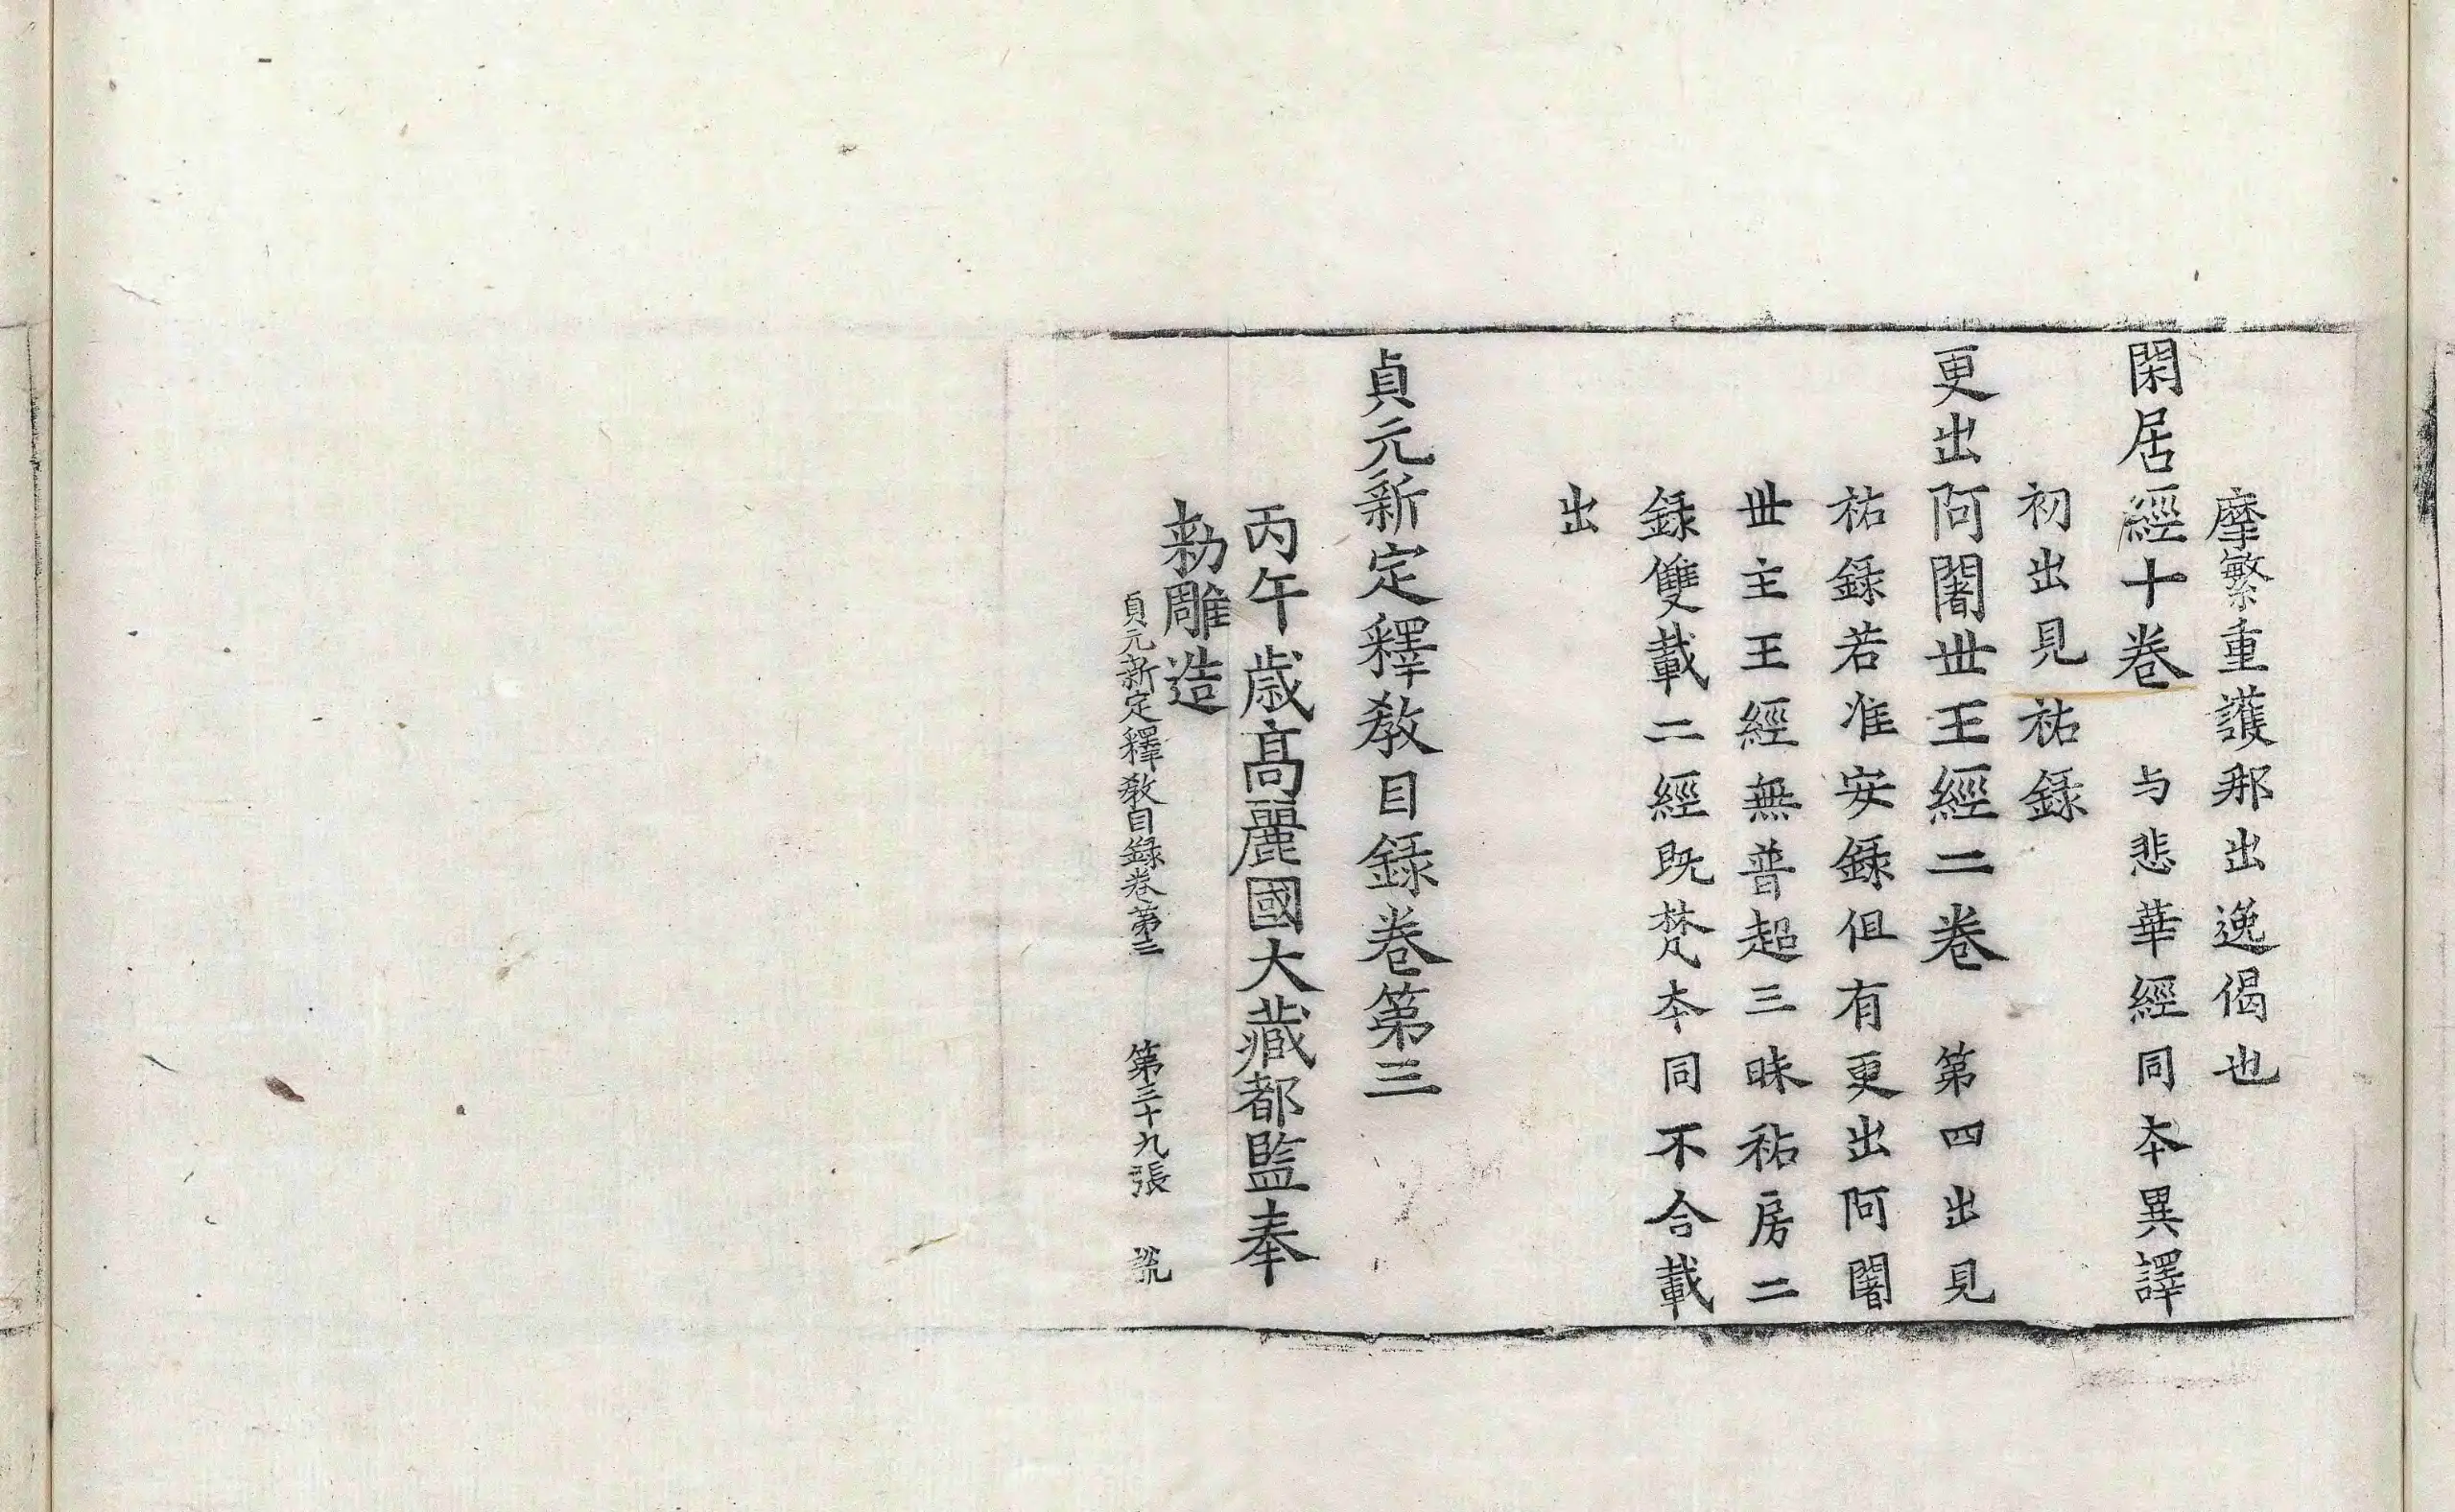 摩繁重護那出逸偈也
閑居經十卷 与悲華經同夲異譯
初出見祐録
更出阿闍丗王經二卷 第四出見
祐録若准安録但有更出阿闍
丗主王經無普超三昧祐房二
録雙載二經既梵夲同不合載
出
貞元新定釋敎目録卷第三
丙午歳髙麗國大藏都監奉
勑雕造
貞元新定釋敎目録卷第三 第三十九張 㲋